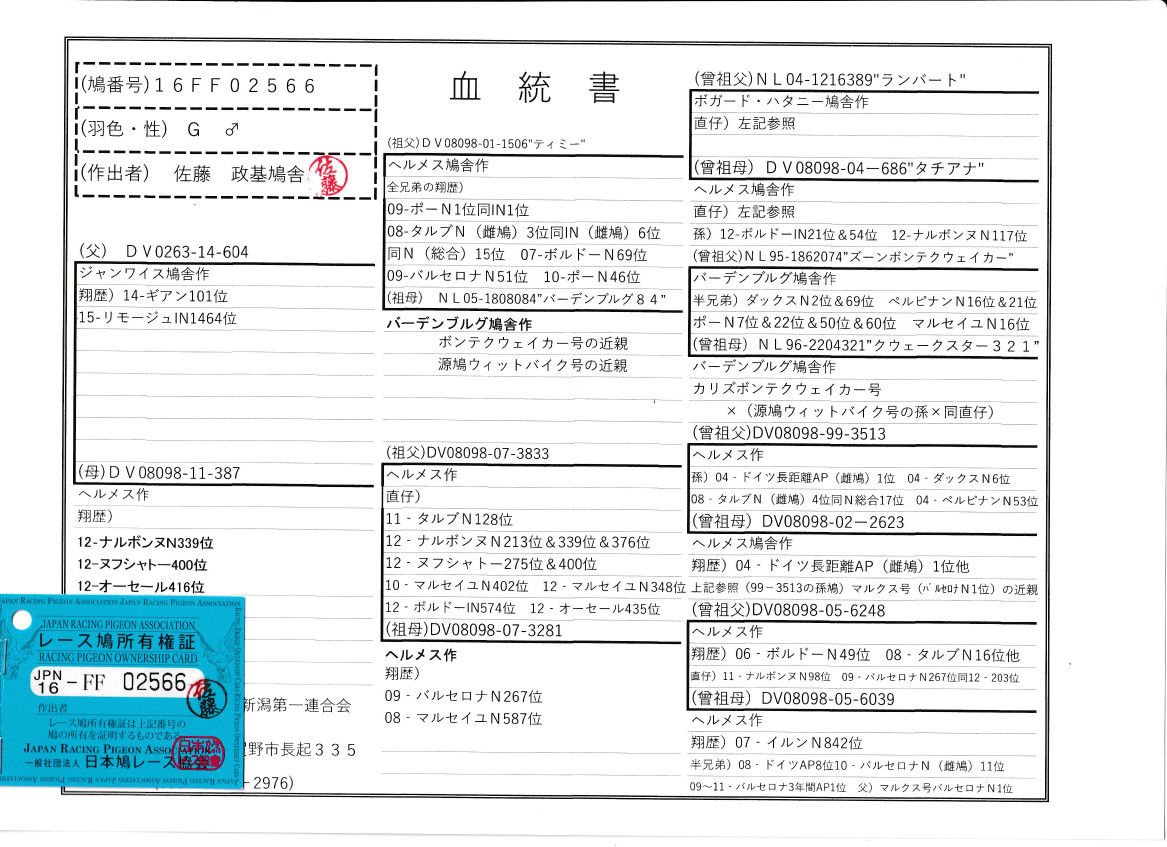 血統書
(鳩番号)１６ＦＦ０２５６６
(羽色・性)　Ｇ　♂
(作出者)　佐藤　政基鳩舎
佐藤
(父)　ＤＶ0263-14-604
ジャンワイス鳩舎作
翔歴）14-ギアン101位
15-リモージュIN1464位
(母)ＤＶ08098-11-387
ヘルメス作
翔歴）
12-ナルボンヌN339位
12-ヌフシャトー400位
12-オーセール416位
新潟第一連合会
野市長起３３５
-2976)
(祖父)ＤＶ08098-01-1506"ティミー"
ヘルメス鳩舎作
全兄弟の翔歴）
09-ポーＮ1位同IN1位
08-タルブＮ（雌鳩）3位同IN（雌鳩）6位
同Ｎ（総合）15位　07-ボルドーＮ69位
09-バルセロナＮ51位　10-ポーＮ46位
(祖母)　ＮＬ05-1808084"バーデンブルグ８４"
バーデンブルグ鳩舎作
ボンテクウェイカー号の近親
源鳩ウィットバイク号の近親
(祖父)DV08098-07-3833
ヘルメス作
直仔）
11‐タルブＮ128位
12‐ナルボンヌＮ213位＆339位＆376位
12‐ヌフシャトー275位＆400位
10‐マルセイユＮ402位　12‐マルセイユＮ348位
12‐ボルドーIN574位　12‐オーセール435位
(祖母)DV08098-07-3281
ヘルメス作
翔歴）
09‐バルセロナＮ267位
08‐マルセイユＮ587位
(曾祖父)ＮＬ04-1216389"ランバート"
ボガード・ハタニー鳩舎作
直仔）左記参照
(曾祖母)　ＤＶ08098-04ー686"タチアナ"
ヘルメス鳩舎作
直仔）左記参照
孫）12-ボルドーIN21位＆54位　12-ナルボンヌＮ117位
(曾祖父)ＮＬ95-1862074"ズーンボンテクウェイカー"
バーデンブルグ鳩舎作
半兄弟）ダックスＮ2位＆69位　ペルピナンＮ16位＆21位
ポーＮ7位＆22位＆50位＆60位　マルセイユＮ16位
(曾祖母)　ＮＬ96-2204321"クウェークスター３２１"
バーデンブルグ鳩舎作
カリズボンテクウェイカー号
×（源鳩ウィットバイク号の孫×同直仔）
(曾祖父)DV08098-99-3513
ヘルメス作
孫）04‐ドイツ長距離AP（雌鳩）1位　04‐ダックスＮ6位
08‐タルブＮ（雌鳩）4位同Ｎ総合17位　04‐ペルピナンＮ53位
(曾祖母)　DV08098-02ー2623
ヘルメス鳩舎作
翔歴）04‐ドイツ長距離AP（雌鳩）1位他
上記参照（99－3513の孫鳩）マルクス号（ﾊﾞﾙｾﾛﾅＮ1位）の近親
(曾祖父)DV08098-05-6248
ヘルメス作
翔歴）06‐ボルドーＮ49位　08‐タルブＮ16位他
直仔）11‐ナルボンヌＮ98位　09‐バルセロナＮ267位同12‐203位
(曾祖母)　DV08098-05-6039
ヘルメス作
翔歴）07‐イルンＮ842位
半兄弟）08‐ドイツAP8位10‐バルセロナＮ（雌鳩）11位
09～11‐バルセロナ3年間AP1位　父）マルクス号バルセロナＮ1位
JAPAN RACING PIGEON ASSOCIATION
レース鳩所有権証
RACING PIGEON OWNERSHIP CARD
JPN 16 - FF 02566
佐藤
作出者
レース鳩所有権証は上記番号の
鳩の所有を証明するものである
JAPAN RACING PIGEON ASSOC
一般社団法人 日本鳩レース協会